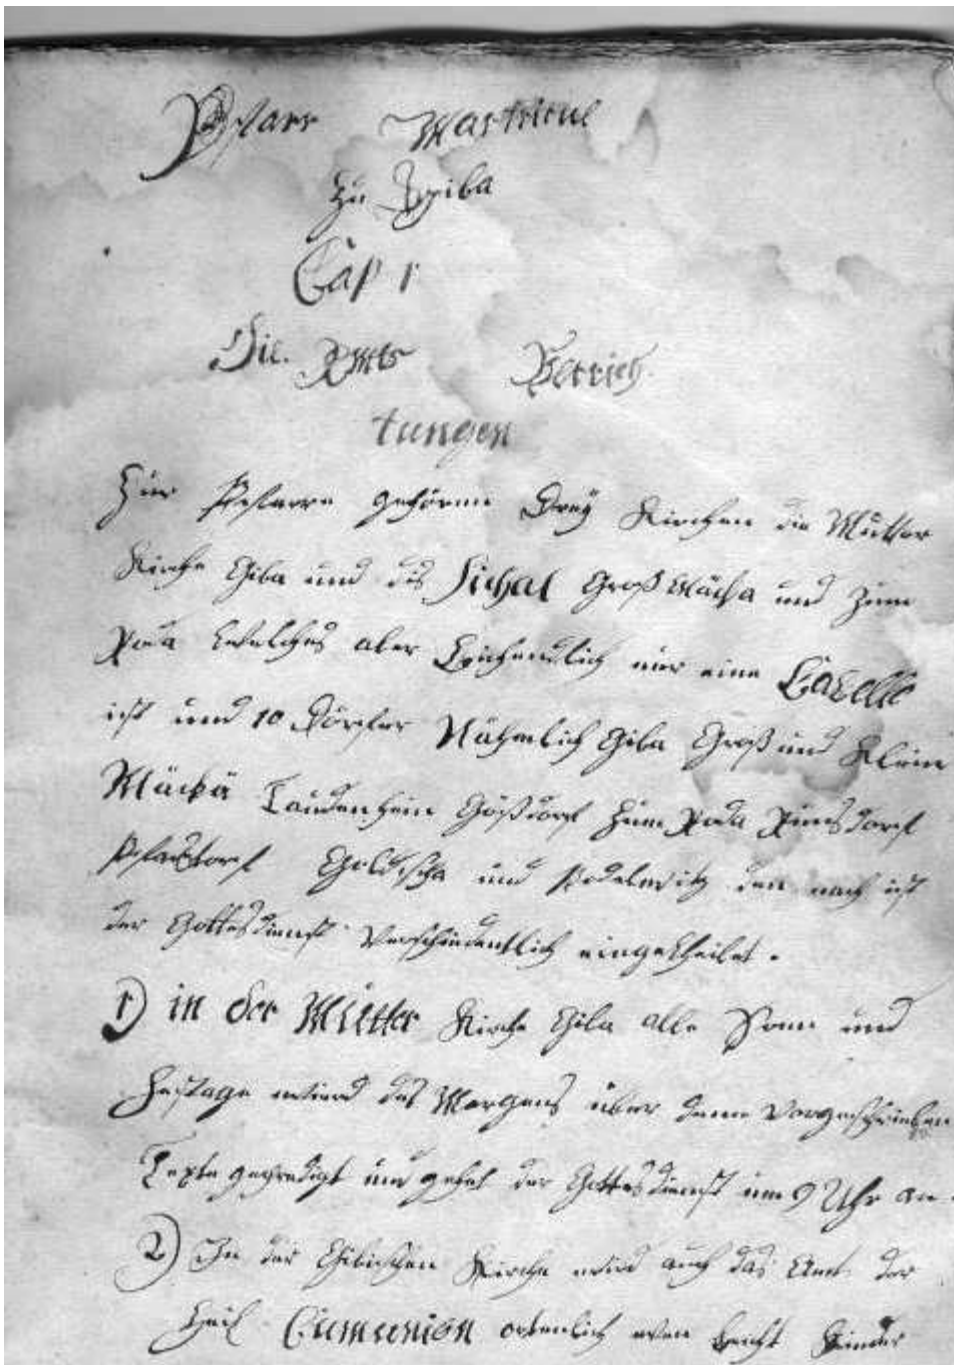 Pfarr Martricul
zu Giba
Cap 1
Die. Amts Verrich
tungen
Zur Pfarre gehören Dreÿ Kirchen die Mutter
Kirche Giba und das Fichal Groß Mäcka und Zum
Roda welches aber nur eine Cazelle
ist und 10 Dörfer Nähmlich Giba Groß und Klein
Mäcka Taudenhein Gößdorf Zum Roda Runsdorf
Pfarsdorf Goldscha und Podelwitz den nach ist
der Gottesdienst Verschiedentlich eingetheilet.
1) in der Mutter Kirche Giba alle Sonn und
Festage wierd das Morgens über denn Vorgeschrieben
Texte geprediget und gehet der Gottesdienst um 9 Uhr an.
2) In der Gibischen Kirche wird auch das Amt der
Heil Cummunion ortenlich wen beicht Kinder